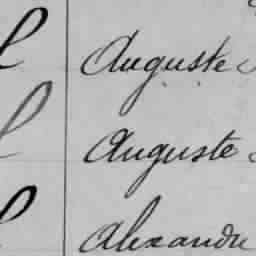 l Auguste
l Auguste
l Alexandre